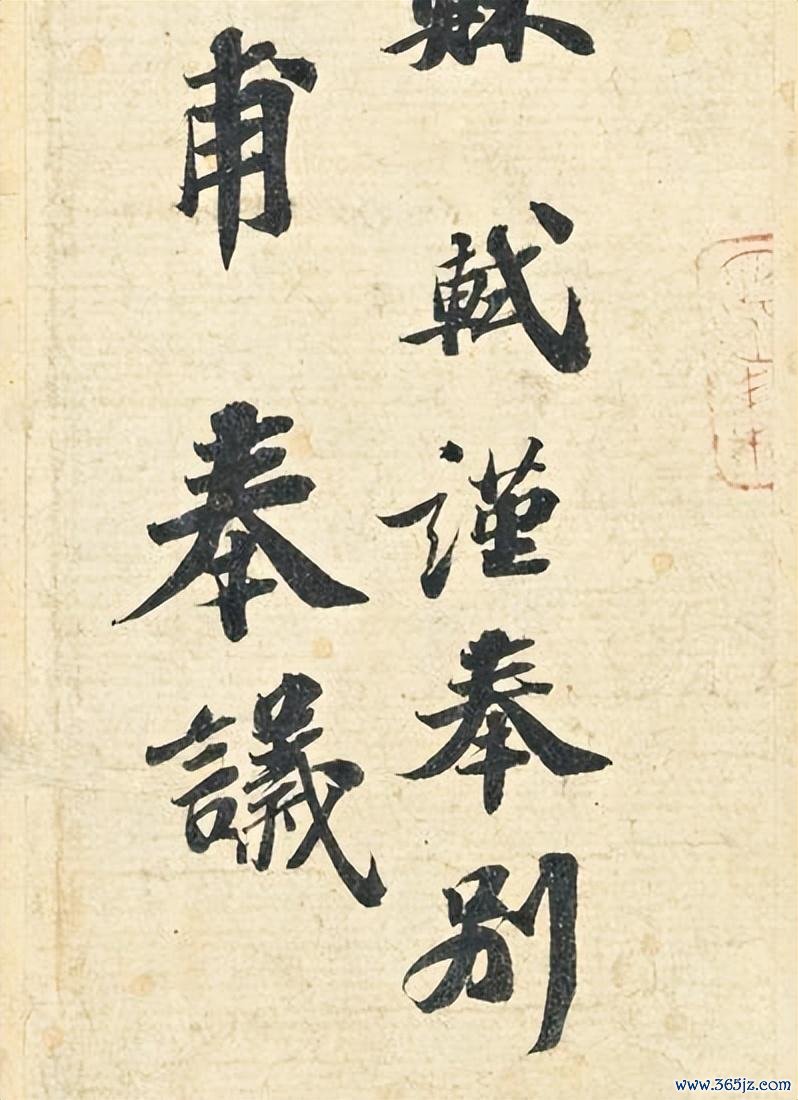 蘇軾謹奉別
甫奉議
www.365jz.com